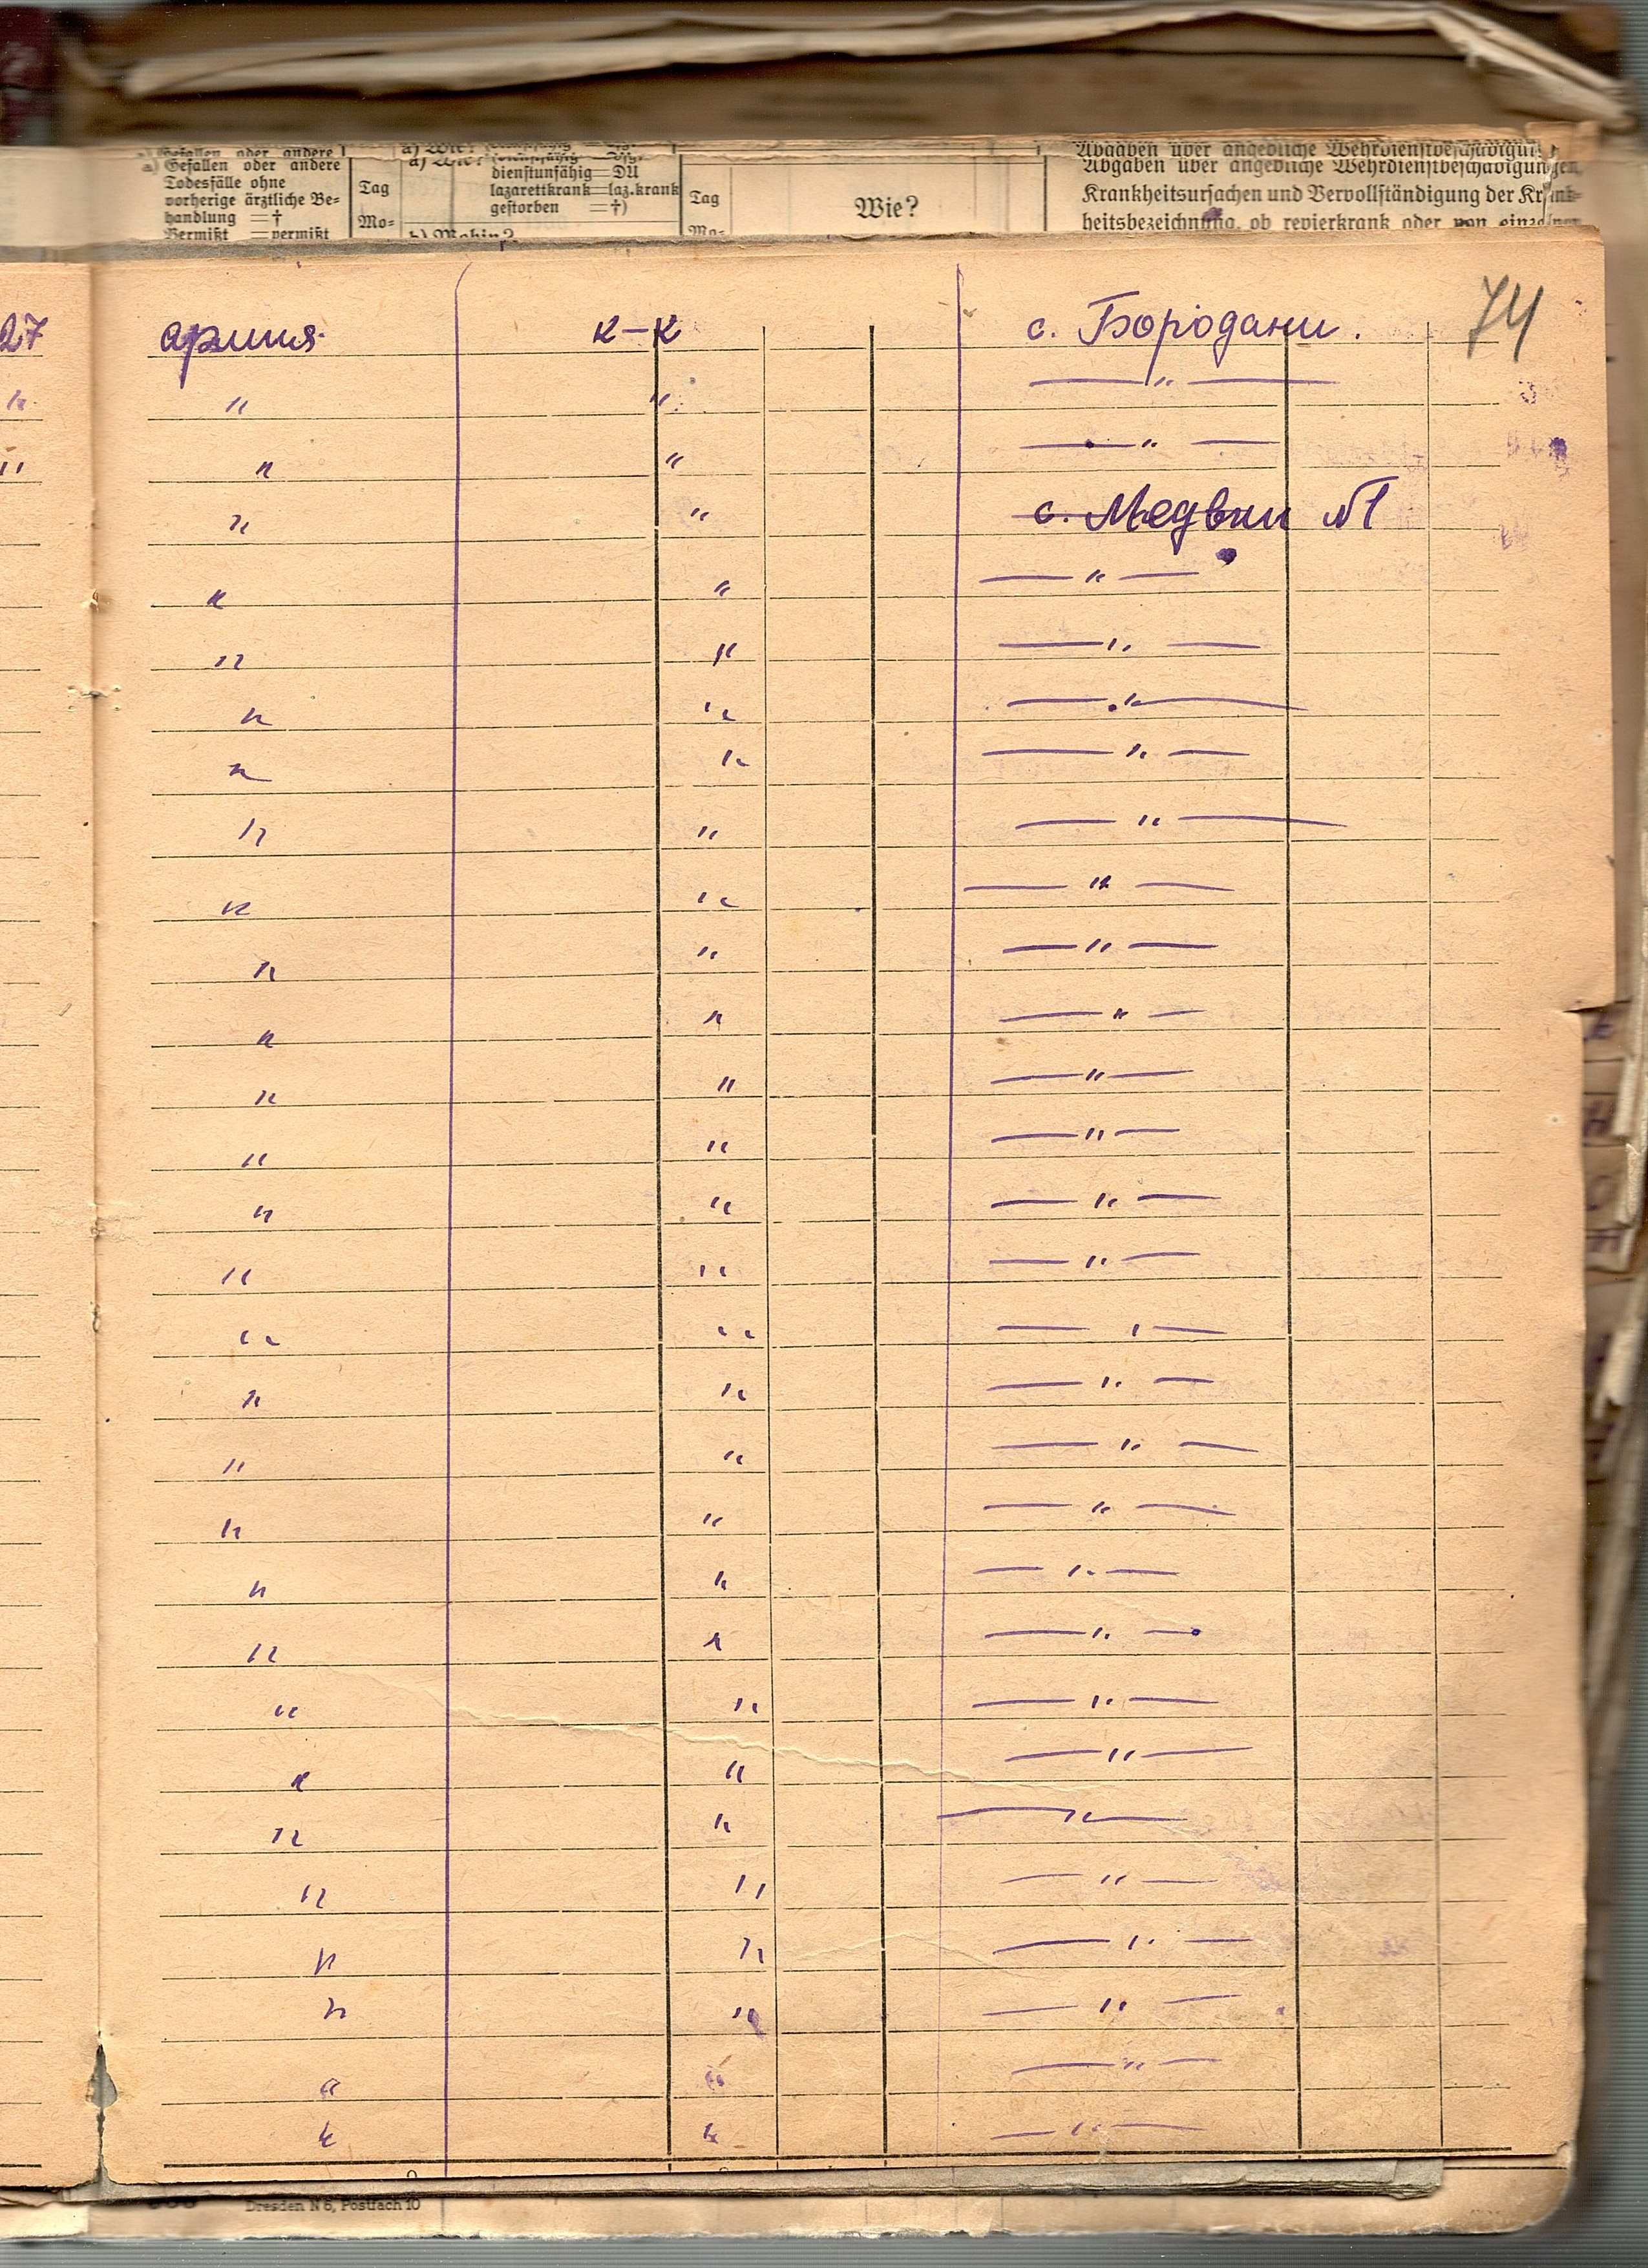 Gefallen oder andere
Todesfälle ohne
vorherige ärztliche Be-
handlung = †
Vermißt = vermißt
Tag
Mo-
a) Wie?
dienstunfähig = DU
lazarettkrank = laz.krank
gestorben = †)
b) Wohin?
Tag
Mo-
Wie?
Abgaben über angebliche Wehrdienstbeschädigungen,
Krankheitsursachen und Vervollständigung der Krank-
heitsbezeichnung, ob revierkrank oder von einzelnen
74
27 армия к-к с. Бородани.
" " " — " —
" " " — " —
" " с. Медвин №1
" " — " —
" " — " —
" " — " —
" " — " —
" " — " —
" " — " —
" " — " —
" " — " —
" " — " —
" " — " —
" " — " —
" " — " —
" " — " —
" " — " —
" " — " —
" " — " —
" " — " —
" " — " —
" " — " —
" " — " —
" " — " —
" " — " —
" " — " —
" " — " —
" " — " —
" " — " —
Dresden N 6, Postfach 10